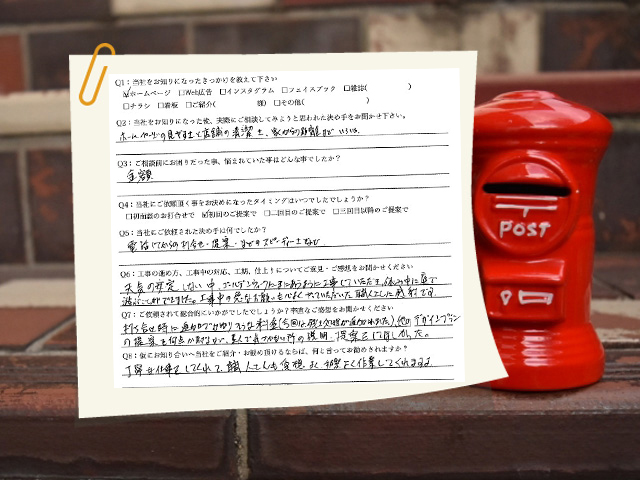 Q1：当社をお知りになったきっかけを教えて下さい
☑ホームページ □Web広告 □インスタグラム □フェイスブック □雑誌( )
□チラシ □看板 □ご紹介( 様) □その他( )
Q2：当社をお知りになった後、実際にご相談してみようと思われた決め手をお聞かせ下さい。
ホームページの見やすさと店舗の清潔さ、家からの距離など いろいろ
Q3：ご相談前にお困りだった事、悩まれていた事はどんな事でしたか？
金額
Q4：当社にご依頼頂く事をお決めになったタイミングはいつでしたでしょうか？
□初面談のお打合せで ☑初回のご提案で □二回目のご提案で □三回目以降のご提案で
Q5：当社にご依頼された決め手は何でしたか？
電話してからの打合せ・提案・などのスピーディーさなど
Q6：工事の進め方、工事中の対応、工期、仕上りについてご意見・ご感想をお聞かせください
天気の安定しない中、ゴールデンウィークにまにあうように工事していただき、休み中に庭で
工事中の急なお願いも心よくやっていただいた職人さんに感謝です。
Q7：ご依頼されて総合的にいかがでしたでしょうか？率直なご感想をお聞かせください
打ち合せ時に追加でかかりそうな料金(今回は残土処理が追加された)、他のデザインプラン
の提案を何点か
説明、提案さほしかった。
Q8：仮にお知り合いへ当社をご紹介・お勧め頂けるならば、何と言ってお勧めされますか？
丁寧な仕事をしてくれて、職人さんも愛想よく手際よく作業してくれますよ
POST